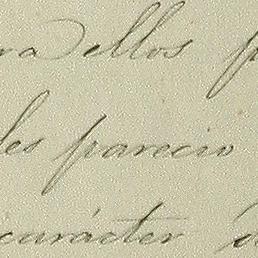 ra ellos p
les parecio
carácter d